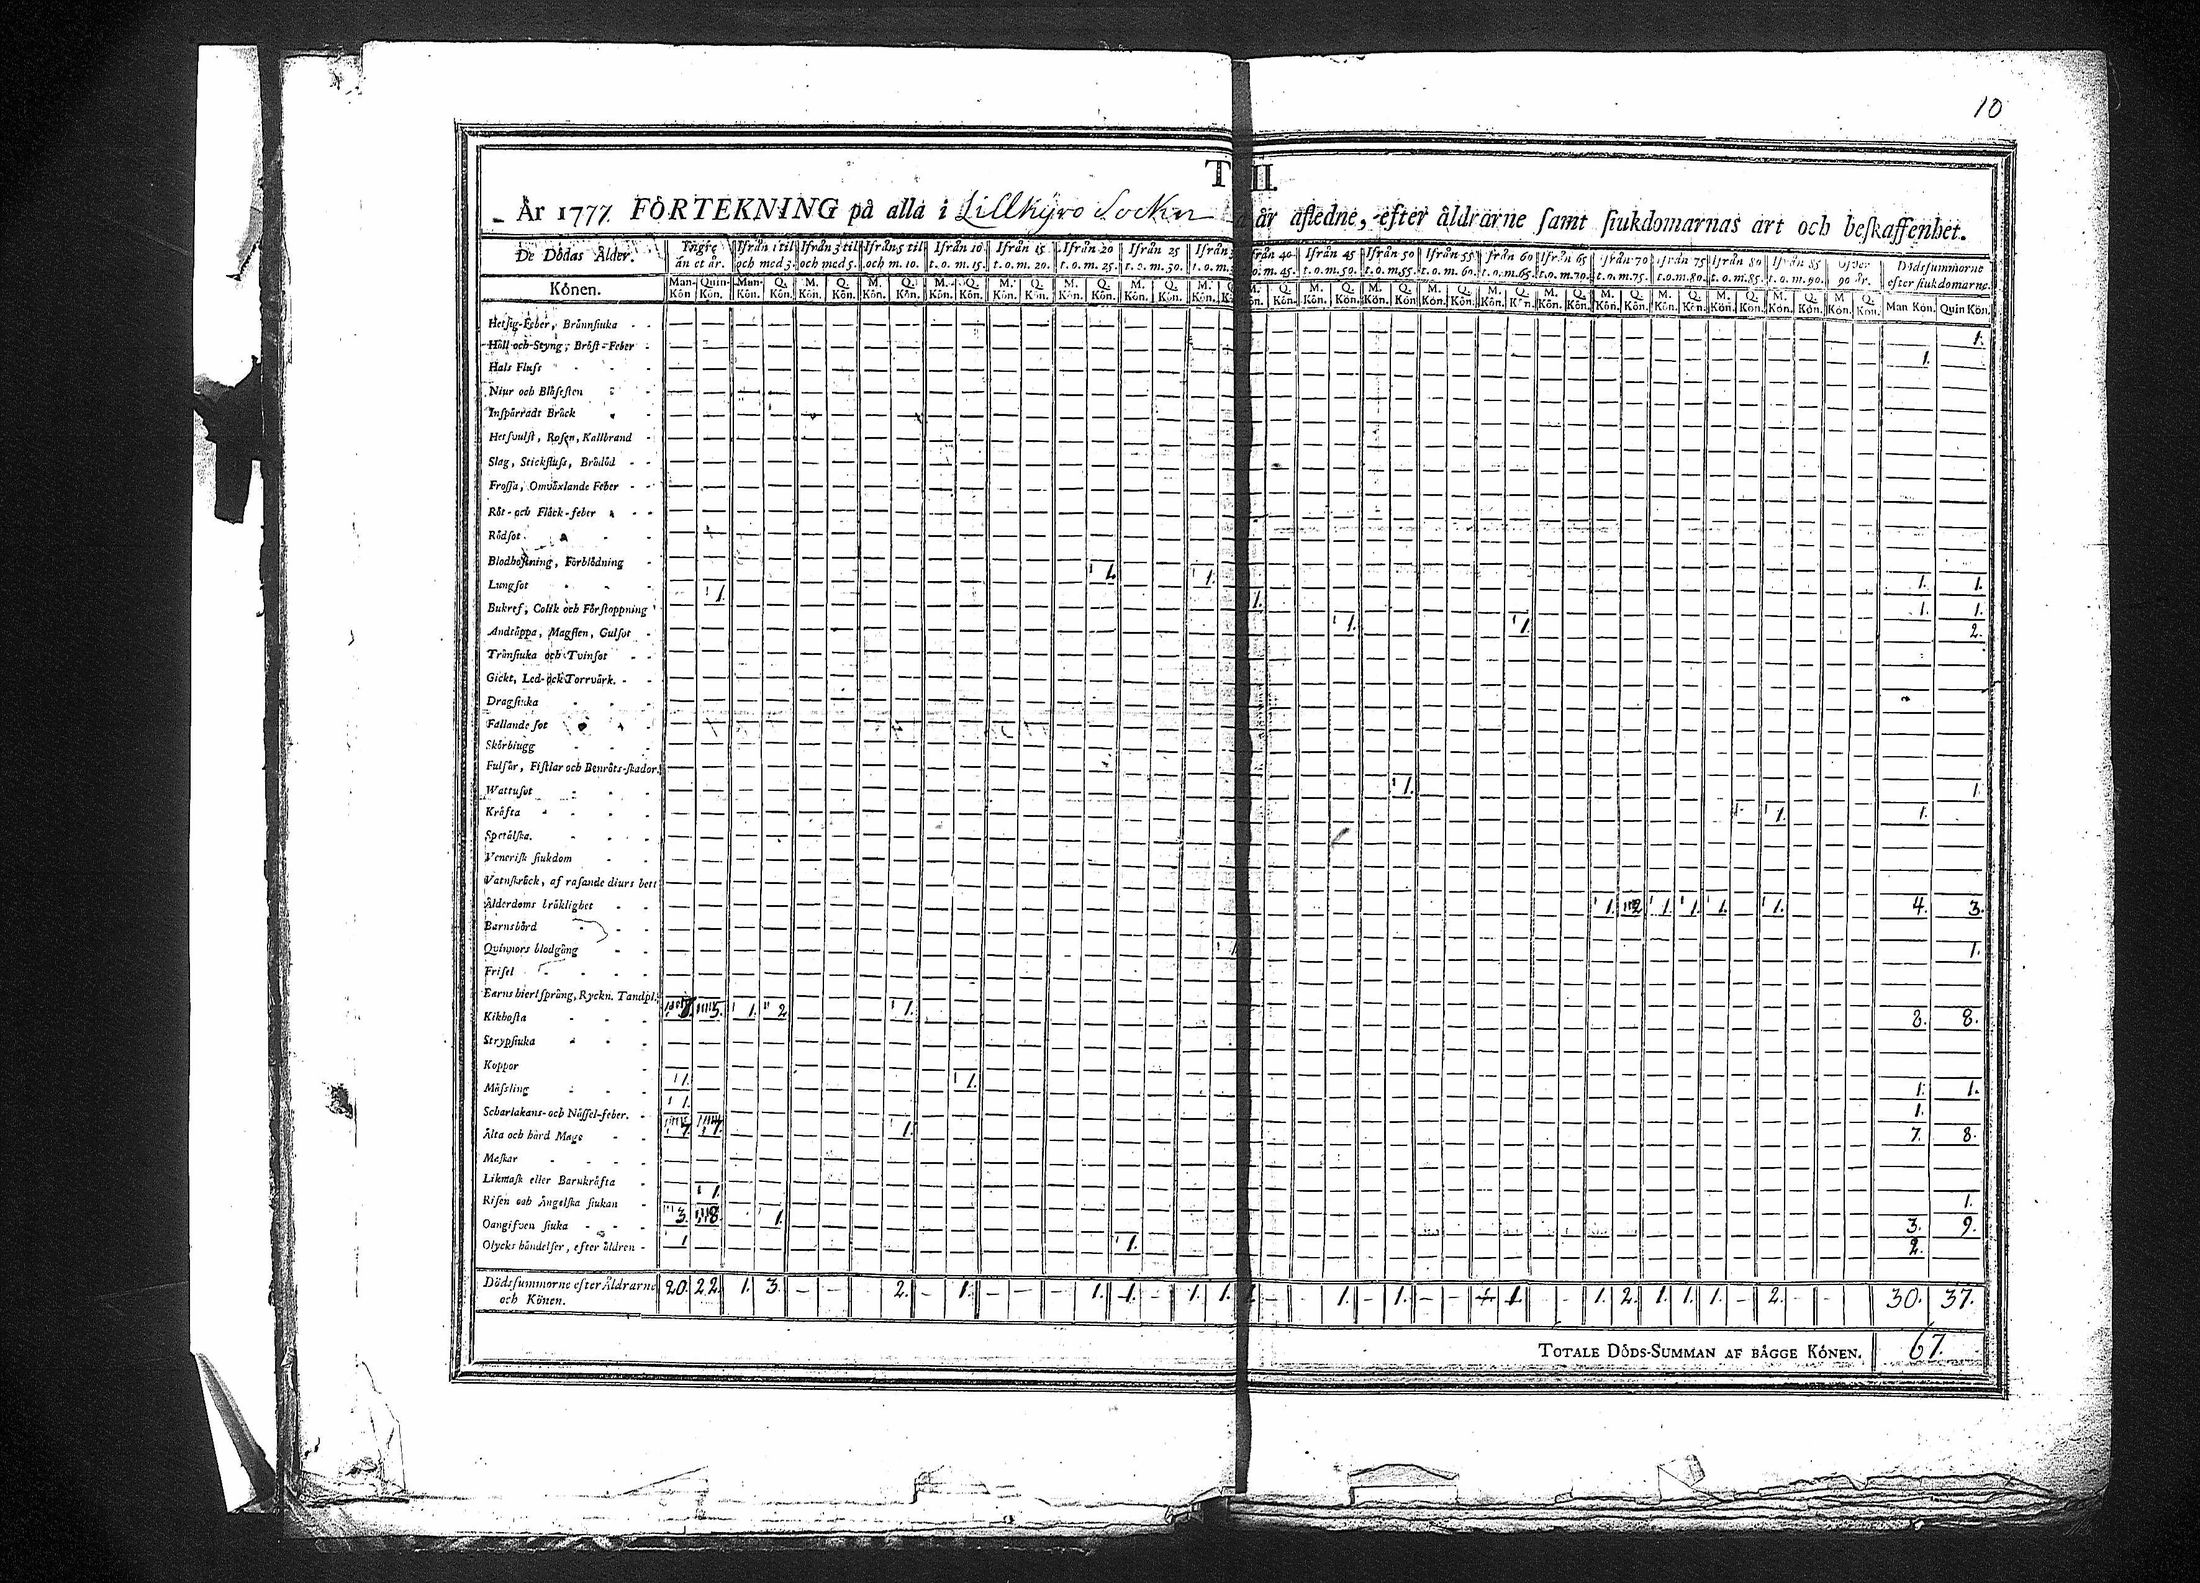 10
T II.
År 1777. FÖRTEKNING på alla i Lillkyro Socken år afledne, efter åldrarne samt siukdomarnas art och beskaffenhet.
De Dödas Ålder. Yngre än et år. Ifrån 1 til och med 3. Ifrån 3 til och med 5. Ifrån 5 til och m. 10. Ifrån 10 t. o. m. 15. Ifrån 15 t. o. m. 20. Ifrån 20 t. o. m. 25. Ifrån 25 t. o. m. 30. Ifrån t. o. m. från 40 o. m. 45. Ifrån 45 t. o. m. 50. Ifrån 50 t. o. m. 55. Ifrån 55 t. o. m. 60. från 60 t. o. m. 65. Ifrån 65 t. o. m. 70. Ifrån 70 t. o. m. 75. Ifrån 75 t. o. m. 80. Ifrån 80 t. o. m. 85. Ifrån 85 t. o. m. 90. öfver 90 år. Dödsummorne efter siukdomarne.
Könen. Man-Kön Quin-Kön. Man-Kön. Q. Kön. M. Kön. Q. Kön. M. Kön. Q. Kön. M. Kön. Q. Kön. M. Kön. Q. Kön. M. Kön. Q. Kön. M. Kön. Q. Kön. M. Kön. Q. Kön. M. Kön. Q. Kön. M. Kön. Q. Kön. M. Kön. Q. Kön. M. Kön. Q. Kön. M. Kön. Q. Kön. M. Kön. Q. Kön. M. Kön. Q. Kön. M. Kön. Q. Kön. M. Kön. Q. Kön. Man Kön. Quin Kön.
Hetsig-Feber, Brännsiuka 1.
Håll och Styng, Bröst-Feber 1.
Hals Fluss
Niur och Blåsesten
Inspärradt Bråck
Hetsvulst, Rosen, Kallbrand
Slag, Stickfluss, Brådöd
Frossa, Omväxlande Feber
Röt- och Fläck-feber
Rödsot
Blodhostning, Förblödning
Lungsot 1. 1. 1. 1.
Bukref, Colik och Förstoppning 1. 1. 1. 1.
Andtäppa, Magsten, Gulsot 1. 1. 2.
Trånsiuka och Tvinsot
Gickt, Led- och Torrvärk.
Dragsiuka
Fallande sot
Skörbiugg
Fulsår, Fistlar och Benröts-skador.
Wattusot 1. 1.
Kräfta 1. 1.
Spetälska.
Venerisk siukdom
Vatnskräck, af rasande diurs bett
Ålderdoms bräklighet 1. 2 1. 1. 1. 1. 4. 3.
Barnsbörd
Quinnors blodgång 1. 1.
Frisel
Barns hiertsprång, Ryckn. Tandpl.
Kikhosta 7. 5. 1. 2 1. 8. 8.
Strypsiuka
Koppor
Mässling 1. 1. 1. 1.
Scharlakans- och Nässel-feber. 1. 1.
Älta och hård Mage 7. 7. 1. 7. 8.
Maskar
Likmask eller Barnkräfta
Risen och Ängelska siukan 1. 1.
Oangifven siuka 3. 8. 1. 3. 9.
Olycks händelser, efter åldren 1 1. 2.
Dödsummorne efter Åldrarne och Könen. 20. 22. 1. 3. – – – 2. – 1. – – – 1. 1. – 1. 1. 1. – – 1. – 1. – – 1. – – 1. 2. 1. 1. 1. – 2. – – 30. 37.
TOTALE DÖDS-SUMMAN AF BÄGGE KÖNEN. 67.